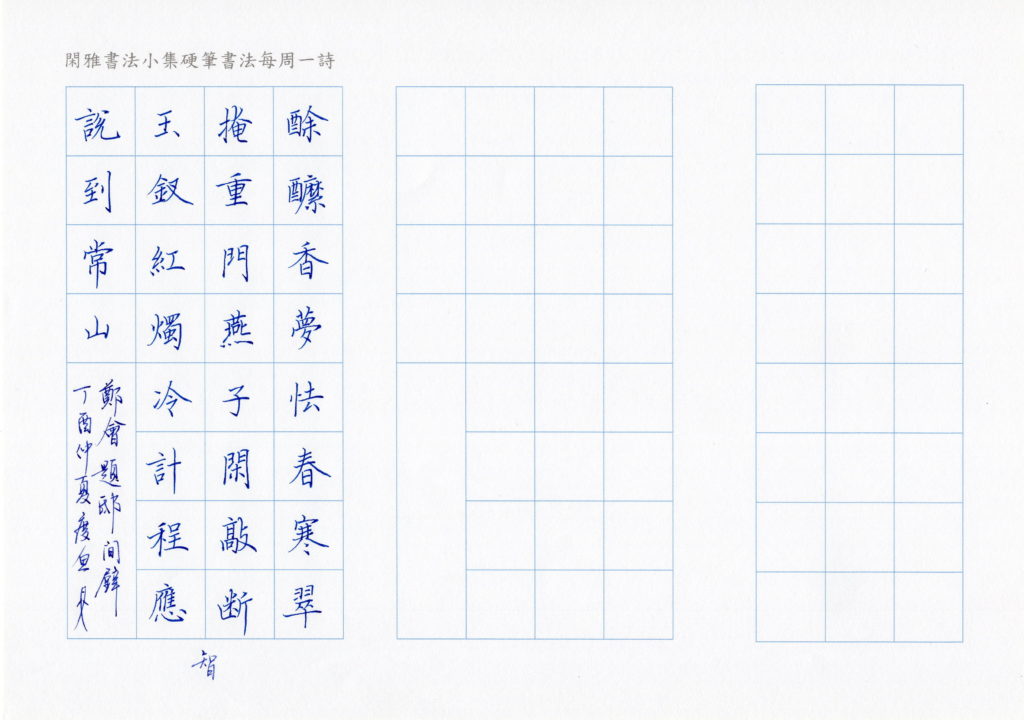 閑雅書法小集硬筆書法每周一詩
酴醿香夢怯春寒翠
掩重門燕子閑敲断
玉釵紅燭冷計程應
說到常山
鄭會題邸間壁
丁酉仲夏
智